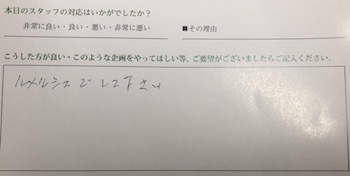 本日のスタッフの対応はいかがでしたか?
非常に良い・良い・悪い・非常に悪い ■その理由
こうした方が良い・このような企画をやってほしい等、ご要望がございましたらご記入ください。
ルメルシエで して下さい